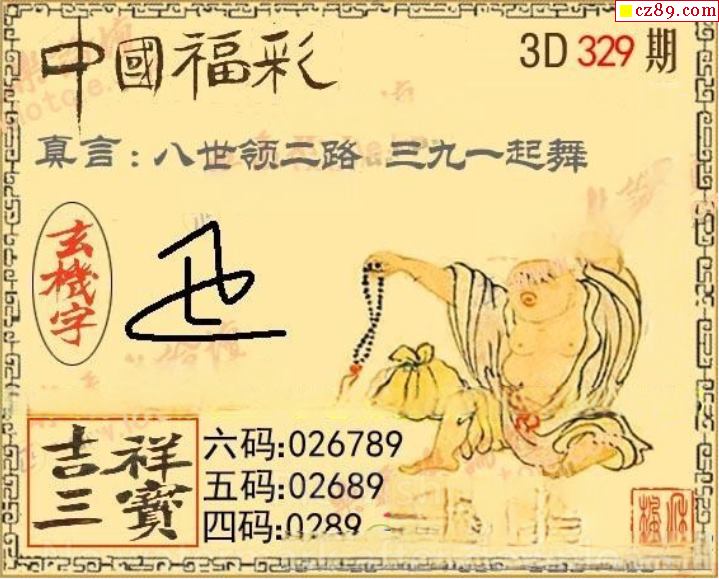 cz89.com
中國福彩
3D 329 期
真言：八世领二路 三九一起舞
玄機字
吉祥三寶
六码:026789
五码:02689
四码:0289